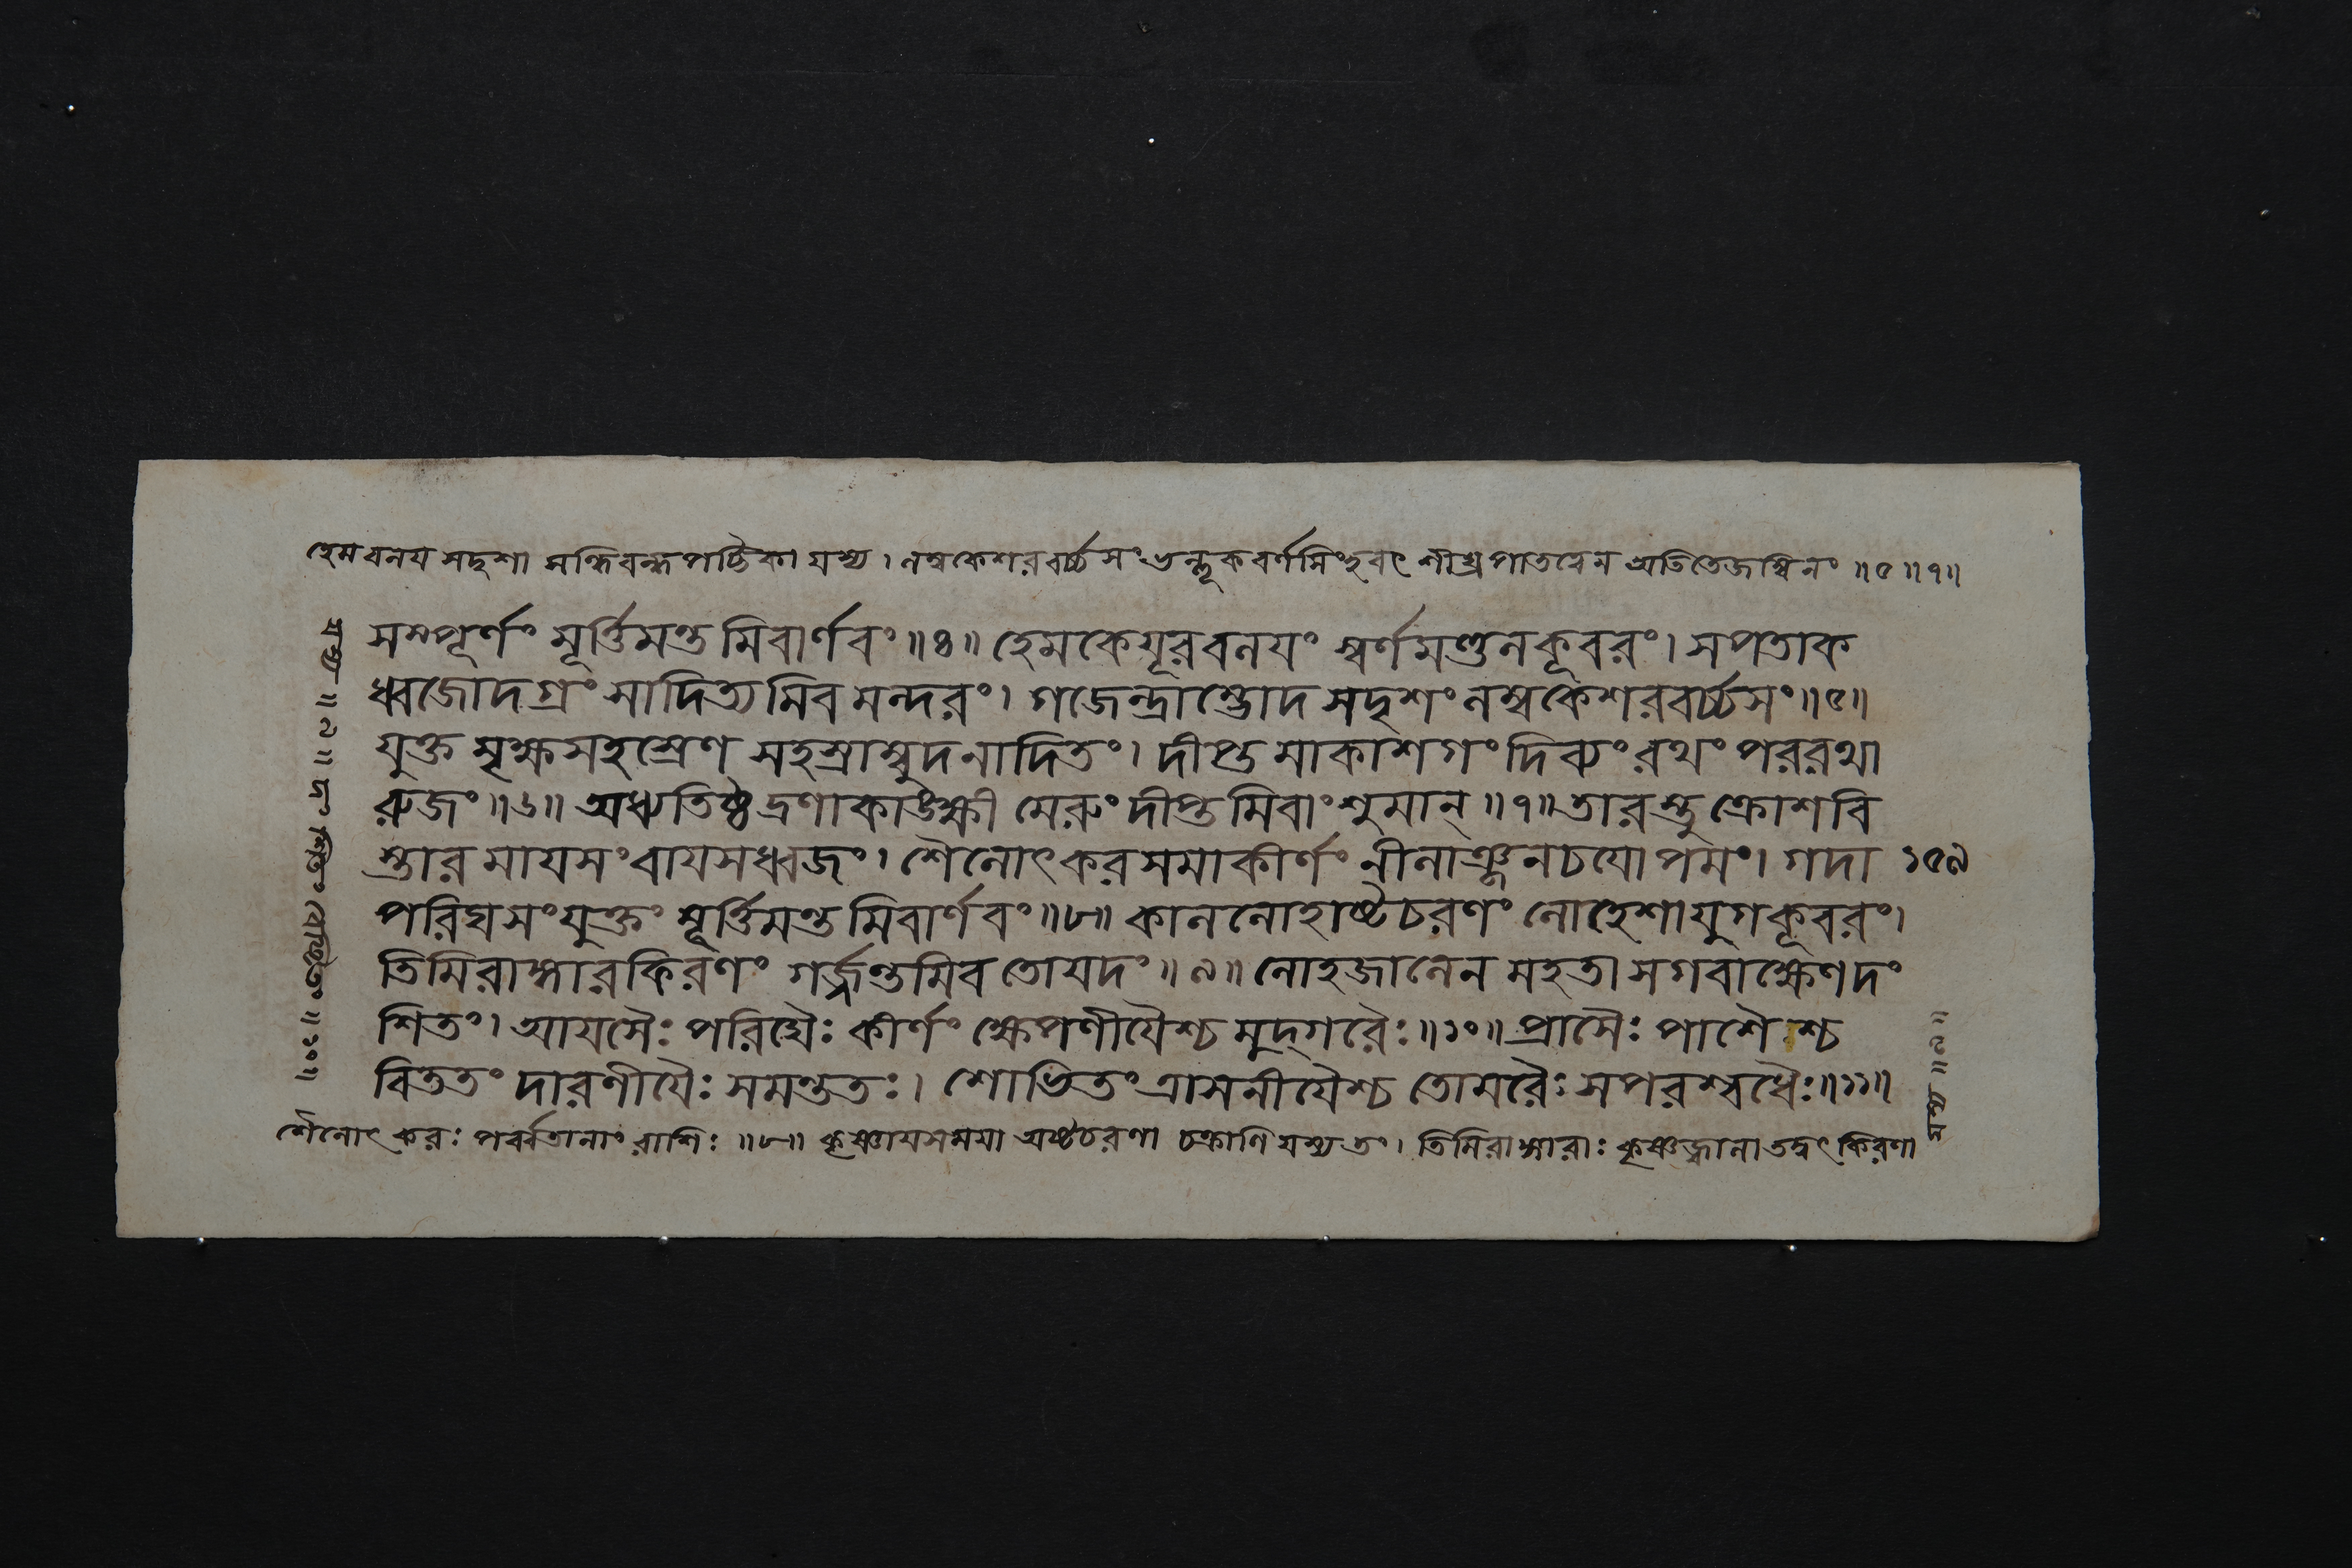 হেমবলয সদৃশা সন্ধিবন্ধ পট্টিকা যস্য। লম্বকেশর বর্চ্চসং ভল্লূক বর্ণসিংহবৎ শীঘ্রপাতত্বেন অতিতেজস্বিনং ॥৫॥৭॥
সম্পূর্ণং মূর্ত্তিমন্ত মিবার্ণবং ॥৪॥ হেমকেযূরবলযং স্বর্ণমণ্ডলকূবরং। সপতাক
ধ্বজোদগ্রং সাদিত্য মিব মন্দরং। গজেন্দ্রাম্ভোদ সদৃশং লম্বকেশরবর্চ্চসং॥৫॥
যুক্ত মৃক্ষসহস্রেণ সহস্রাম্বুদনাদিতং। দীপ্ত মাকাশগং দিব্যং রথং পররথা
রুজং ॥৬॥ অধ্যতিষ্ঠ দ্রণাকাঙ্ক্ষী মেরুং দীপ্ত মিবাংশুমান্ ॥৭॥ তারস্তু ক্রোশবি
স্তার মাযসং বাযসধ্বজং। শৈলোৎকর সমাকীর্ণং নীলাঞ্জনচযোপমং। গদা ১৫৯
পরিঘসংযুক্তং মূর্ত্তিমন্ত মিবার্ণবং॥৮॥ কাললোহাষ্টচরণং লোহেশাযুগকূবরং।
তিমিরাঙ্গারকিরণং গর্জ্জন্তমিব তোযদং ॥৯॥ লোহজালেন মহতা সগবাক্ষেণ দং
শিতং। আযসৈঃ পরিঘৈঃ কীর্ণং ক্ষেপণীযৈশ্চ মুদ্গরৈঃ॥১০॥ প্রাসৈঃ পাশৈশ্চ
বিততং দারণীযৈঃ সমন্ততঃ। শোভিতং ত্রাসনীযৈশ্চ তোমরৈঃ সপরশ্বধৈঃ॥১১॥
শৈলোৎকরঃ পর্ব্বতানাং রাশিঃ ॥৮॥ কৃষ্ণাযসমযা অষ্টচরণা চক্রাণি যস্য তং। তিমিরাঙ্গারাঃ কৃষ্ণজ্বালা তদ্বৎ কিরণা
যস্য ॥৯॥